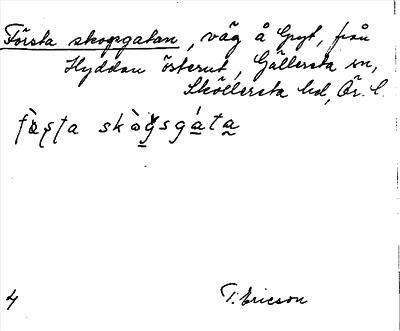 Första skogsgatan, väg å Gryt, från
Hyddan österut, Gällersta sn,
Sköllersta hd, Ör. l.
fö̀ʂʈa skògsgáta
4
T. Ericson